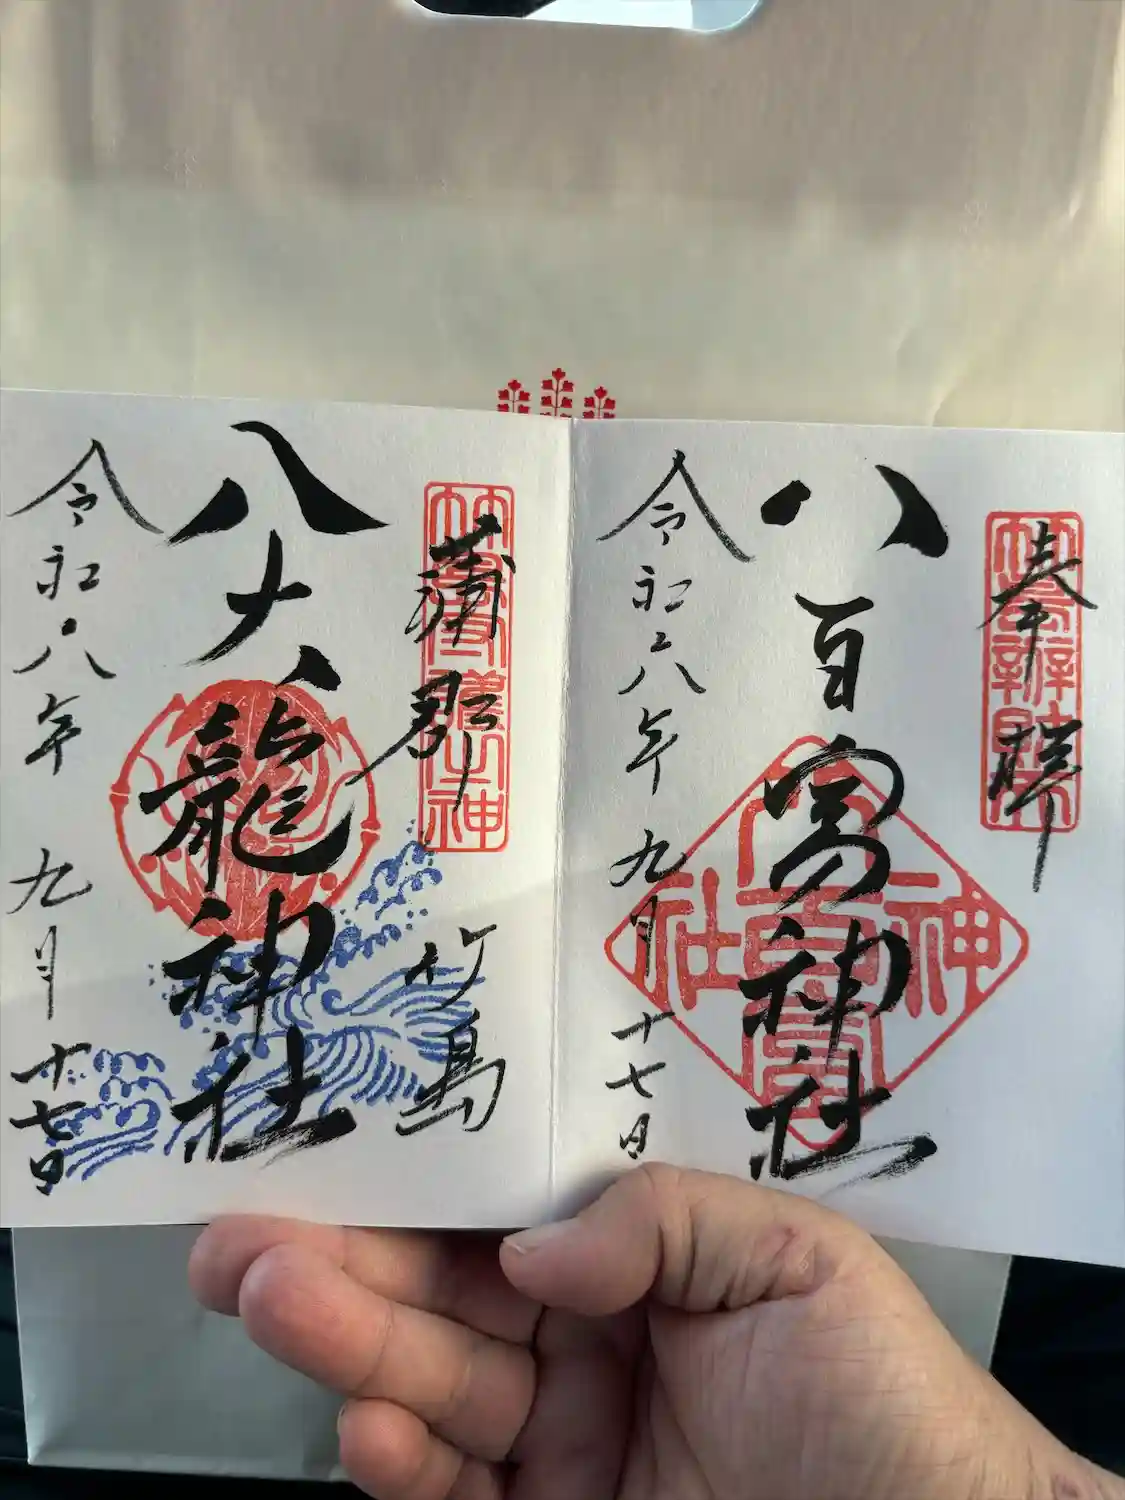 奉拝
八百富神社
八百富神社
令和六年九月十七日
蒲郡 竹島
八大龍神社
令和六年九月十七日